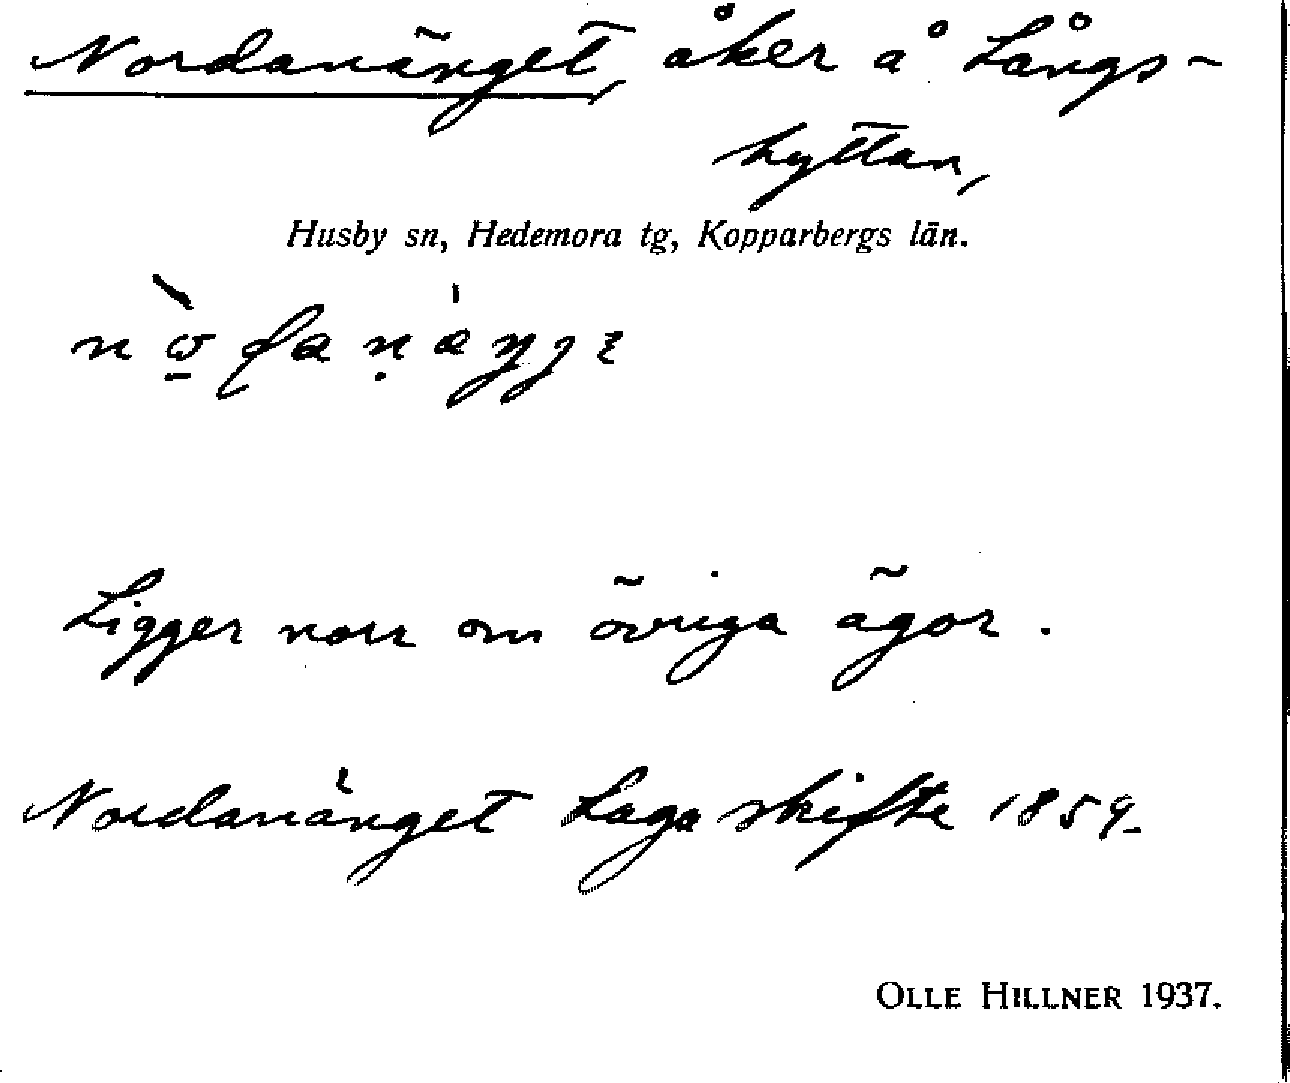 Nordanänget, åker å Långs-
hyttan,
Husby sn, Hedemora tg, Kopparbergs län.
Ligger norr om övriga ägor.
Nordanänget Laga skifte 1859.
OLLE HILLNER 1937.